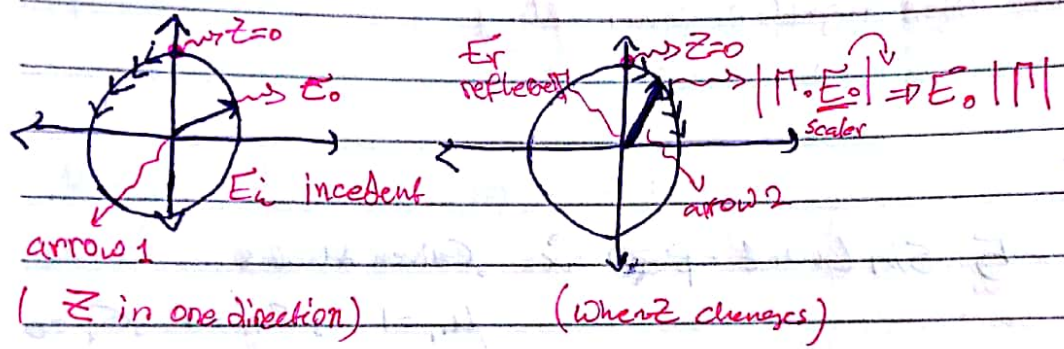 Z=0
E₀
Ei incedent
arrow 1
( Z in one direction)
Er
reflecedt
Z=0
|Γ.E₀| ⇒ E₀ |Γ|
scaler
arrow 2
(when Z changes)